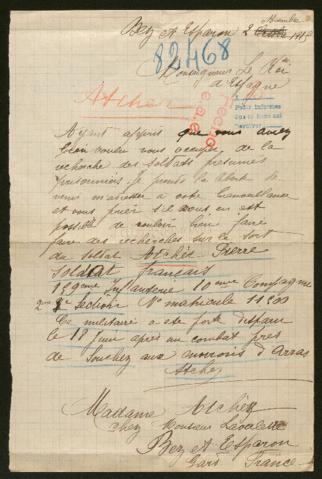 Bez et Esparon 2
82468
Monseigneur Le Roi
d'Espagne
Atcher
Ayant appris que vous avez
bien voulu vous occuper de la
recherche des soldats présumés
prisonniers Je prends la liberté de
venir m'adresser a votre bienveillance
et vous prier s'il vous est
possible de vouloir bien faire
faire des recherches sur le sort
du soldat Atchés Pierre
Soldat français
129me Infanterie 10me Compagnie
2me Section No matricule 11200
Ce militaire a été porté disparu
le 18 Juin après un combat près
de Souchez aux environs d'Arras
Atchez
Madame Atchéz
chez Monsieur
Bez et Esparon
Gard France